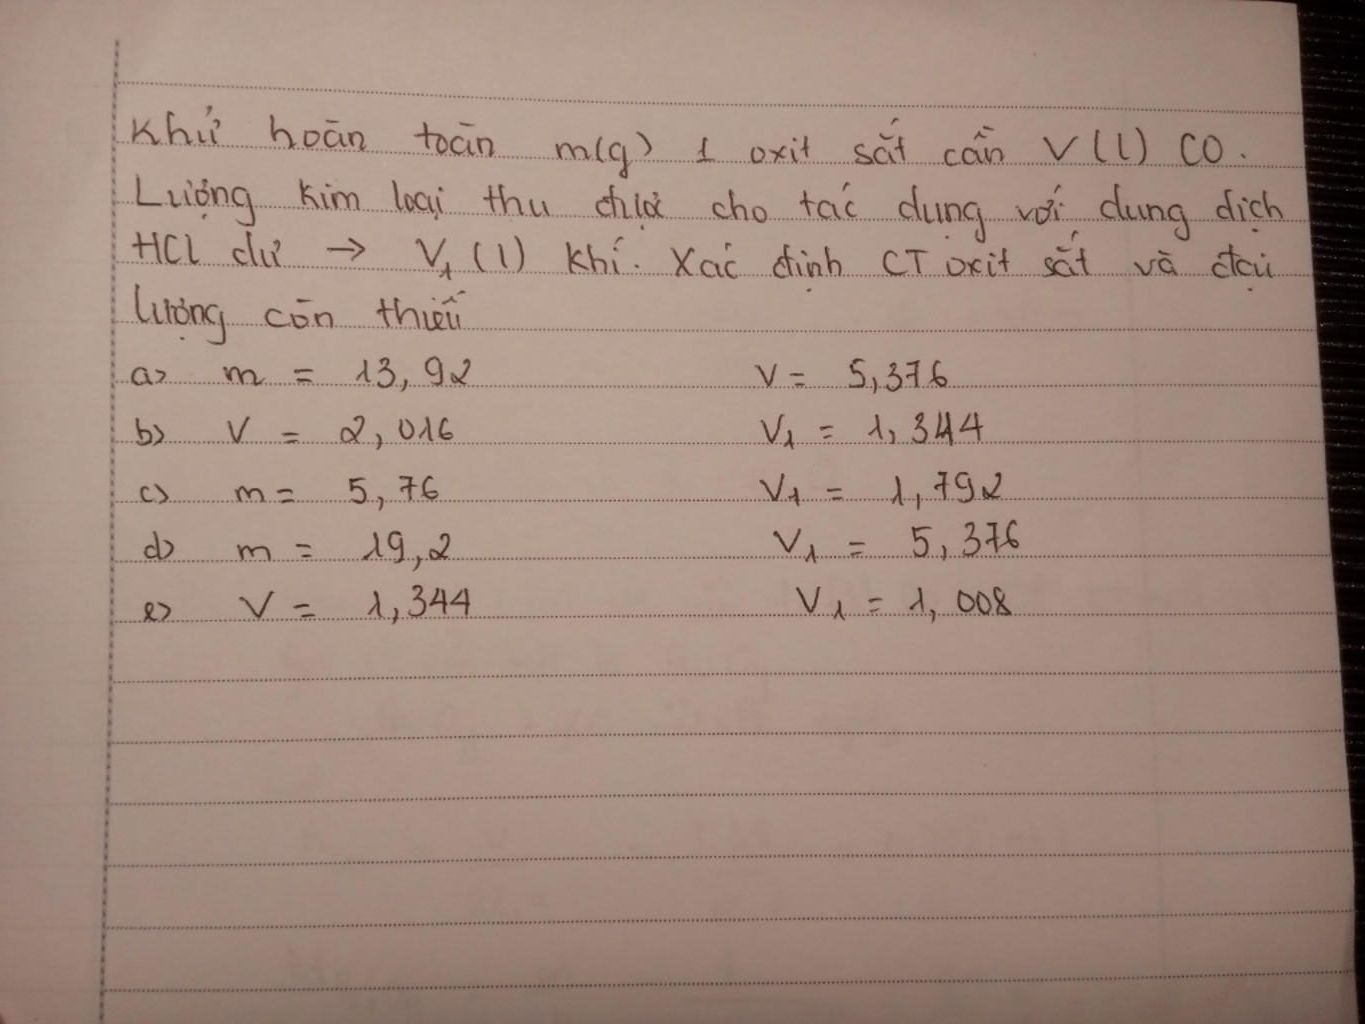 Khử hoàn toàn m(g) 1 oxit sắt cần V (l) CO.
Lượng kim loại thu được cho tác dụng với dung dịch
HCl dư → V₁ (l) khí. Xác định CT oxit sắt và đại
lượng còn thiếu
a> m = 13,92 V = 5,376
b> V = 2,016 V₁ = 1,344
c> m = 5,76 V₁ = 1,792
d> m = 19,2 V₁ = 5,376
e> V = 1,344 V₁ = 1,008